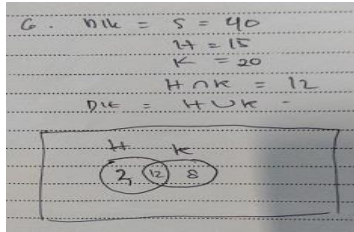 6. Dik = S = 40
H = 15
K = 20
H ∩ K = 12
Dit = H ∪ K =
H K
3 12 8